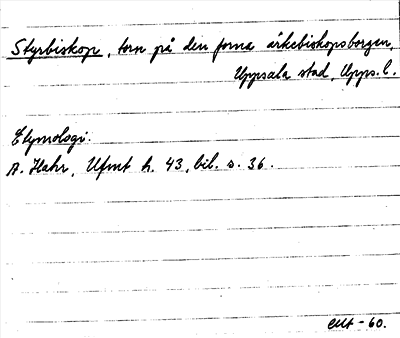 Styrbiskop, torn på den forna ärkebiskopsborgen,
Uppsala stad, Upps. l.
Etymologi:
A. Hahr, Ufmt h. 43, bil. s. 36.
-60.